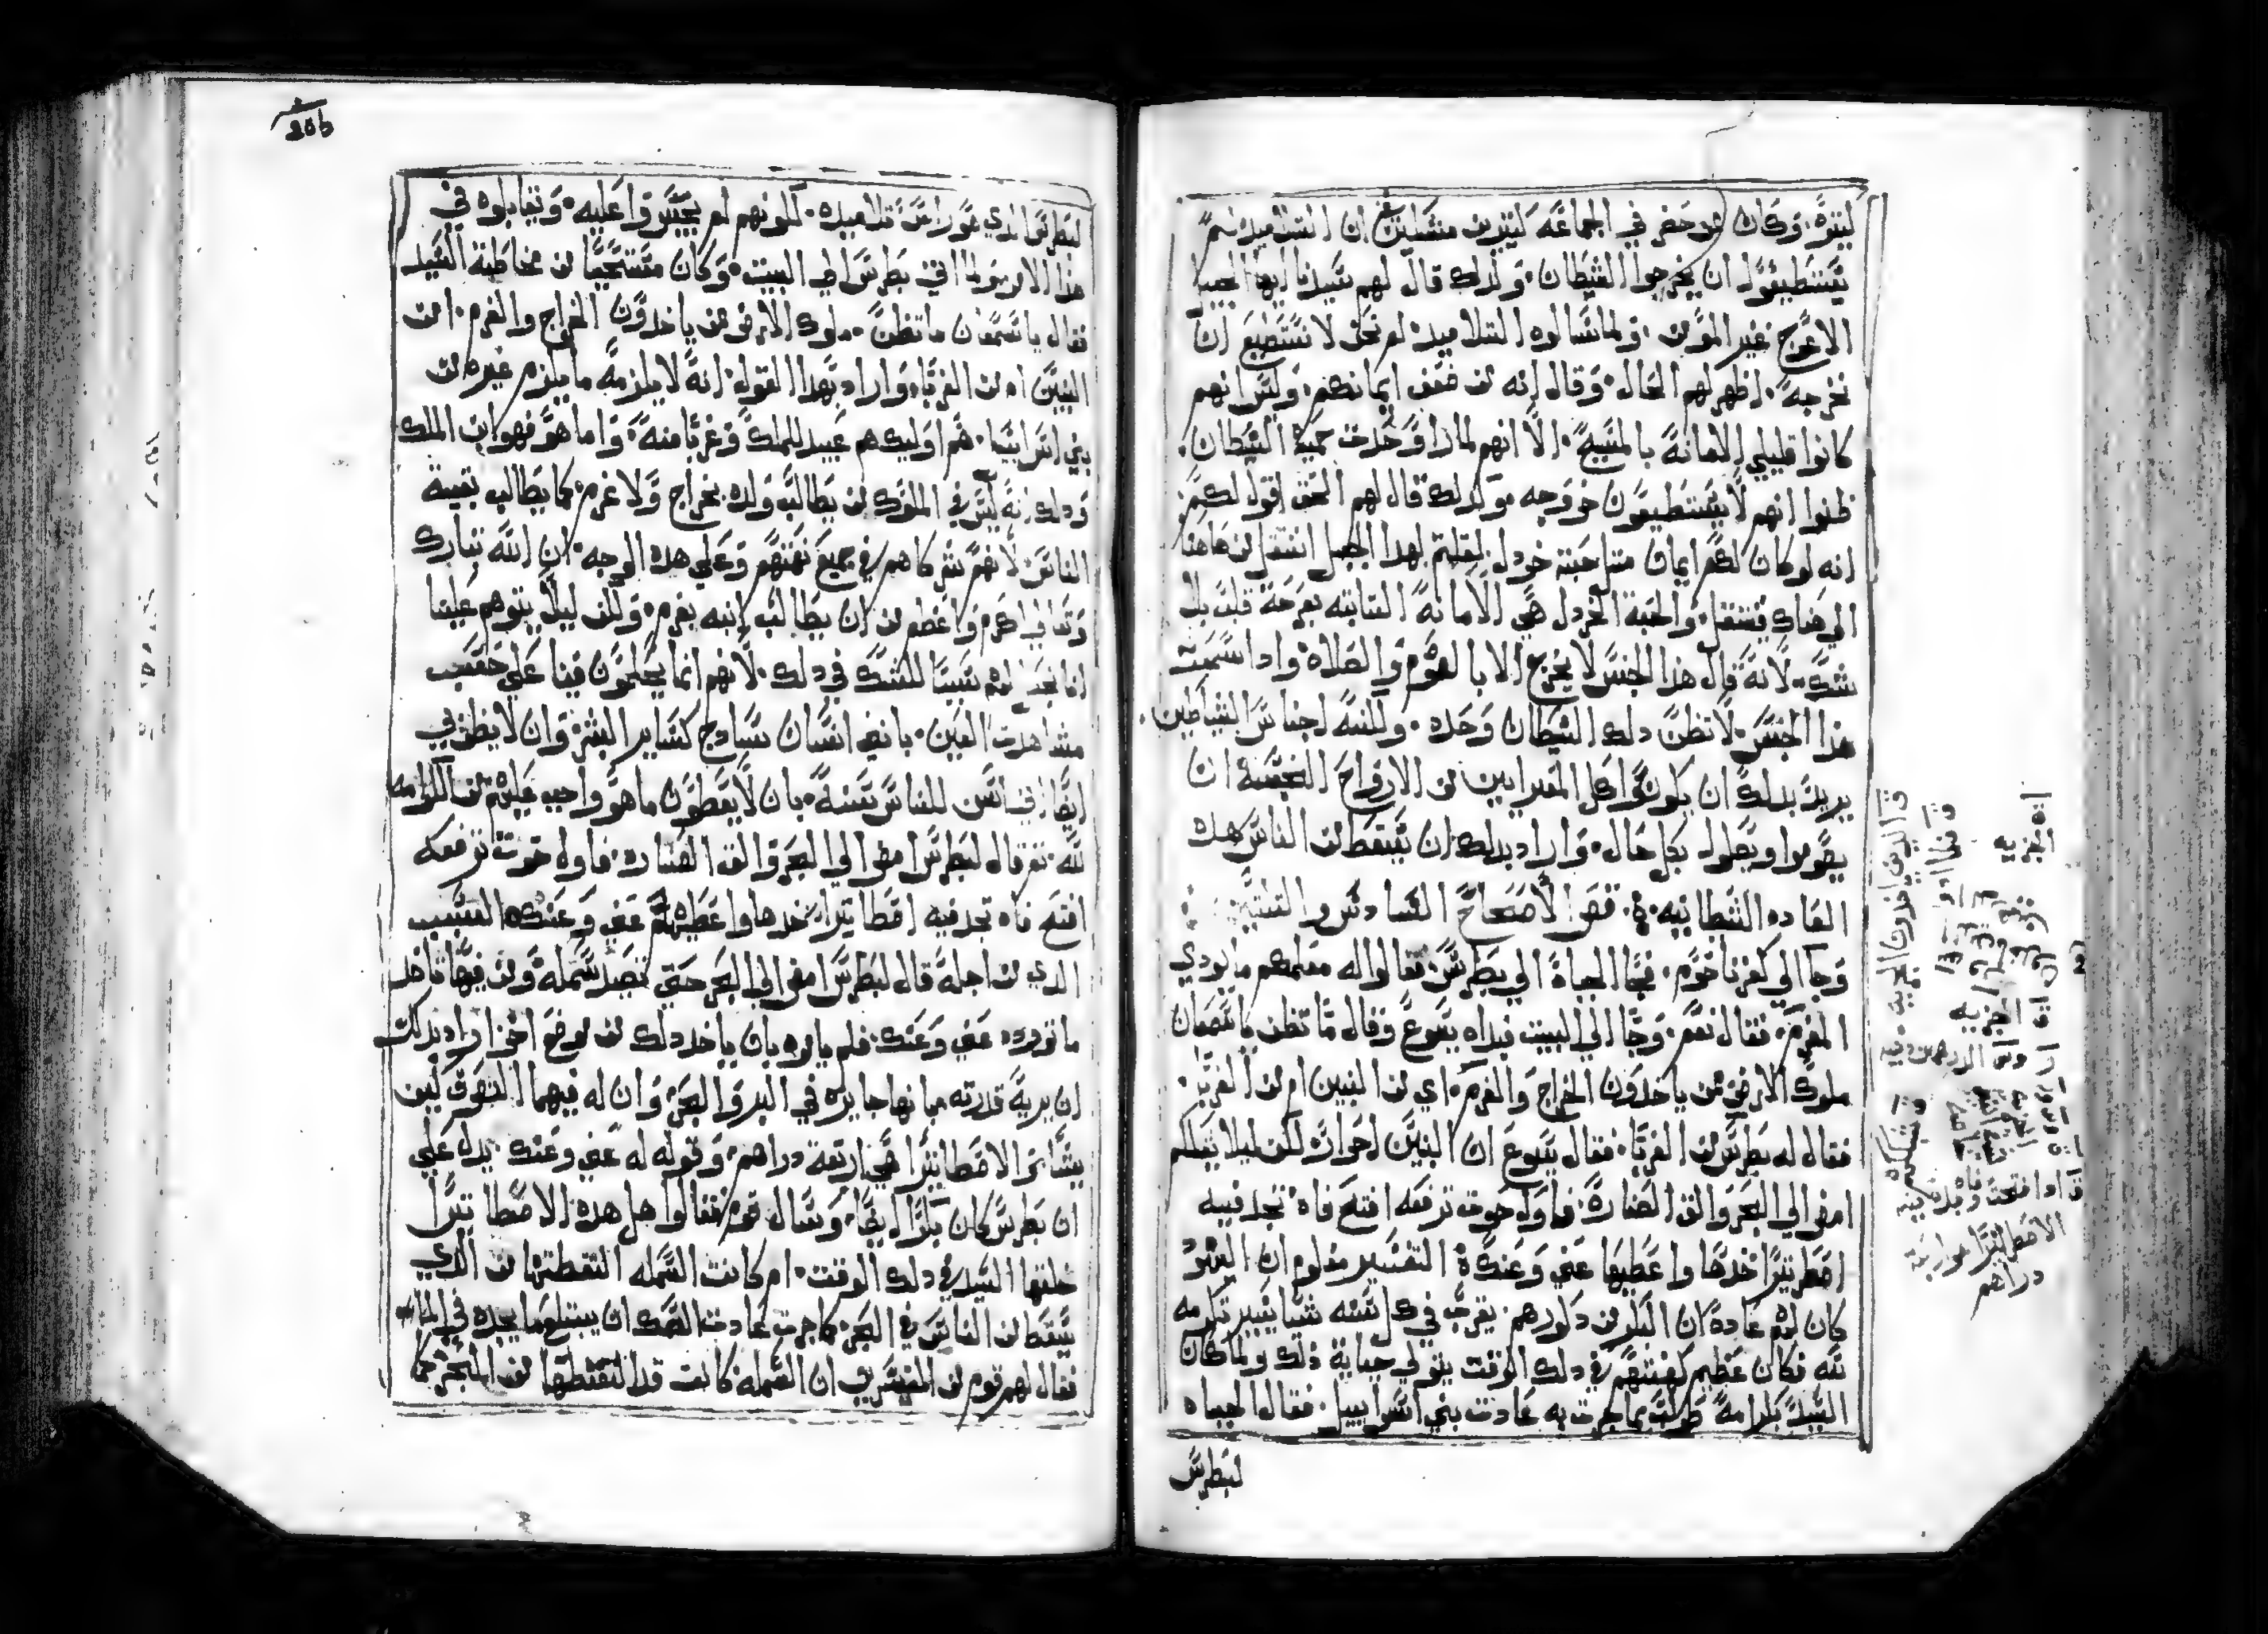 ليتره. وكان قد حضر في الجماعه كتيرين متشككين ان التلاميد لم
يستطيعوا ان يخرجوا الشيطان. ولدلك قال لهم سيدنا ايها الجيل
الاعوج غير المومن. ولما سالوه التلاميد لم نحن لا نستطيع ان
نخرجه. اظهر لهم الحال. وقال انه من ضعف ايمانكم. وليس انهم
كانوا قليلي الامانة بالمسيح. الا انهم لما راو حدت حمية الشيطان.
ظنوا انهم لا يستطيعون خروجه ولدلك قال لهم الحق اقول لكم
انه لو كان لكم ايمان متل حبة خردل لقلتم لهدا الجبل انتقل من هاهنا
الي هناك فينتقل. والحبة الخردل هي الامانة التابته بفرحة قلب بلا
شك. لانه قال هدا الجنس لا يخرج الا بالصوم والصلاة وادا سمعت
هدا الجنس. لا تظن دلك الشيطان وحده. ولكنه اجناس الشياطين.
يريد بدلك ان يكونوا كل المعترايين من الارواح النجسة ان
يصوموا ويصلوا بكل حال. واراد بدلك ان يسقط من الناس هده
العاده الشيطانيه. فص الاصحاح السادس والستين
وجا الي كفرناحوم. فجا الجباة الي بطرس. فقالوا له معلمكم ما يودي
المغرم. فقال نعم. وجا الي البيت فبداه يسوع وقال ما تظن يا سمعان
ملوك الارض ممن ياخدون الخراج والغرم. اي من البنين ام من الغربا.
فقال له بطرس من الغربا. فقال يسوع ان البنين احرار لكن ليلا نشككهم
امض الي البحر والق الصنارة. فاول حوت ترفعه افتح فاه تجد فيه
اصطاتيرا خدها واعطيها عني وعنك التفسير معلوم ان اليهود
كان لهم عادة ان البكر من دكورهم يقرب في كل سنه شيا يسير تكرمه
لله فكان عظيم كهنتهم في دلك الوقت يتولي جباية دلك ولما كان
السيد بكر امه طولب بما جرت به عادت بني اسراييل. فقالوا الجباه
لبطرس
ق الدين ياخدون الجزيه
اة الجزيه
الجزيه
ق ادا فتحت فاه وجدت فيه
الاصطاتيرا هو اربعة
دراهم
206
لبطرس الدي هو راس تلاميده. لكونهم لم يجسروا عليه. ويقابلوه في
هدا الامر ولما اتي بطرس الي البيت. وكان مستحييا من مخاطبة السيد
فقال يا سمعان ما تظن. ملوك الارض ممن ياخدون الخراج والغرم. امن
البنين ام من الغربا. واراد بهدا القول. انه لا يلزمه ما يلزم غيره من
بني اسراييل. هم اوليك هم عبيد للملك وغربا منه. واما هو فهو ابن الملك
ودلك انه ليس في الملوك من يطالب ولده بخراج ولا غرم. كما يطالب بقية
الناس. لانهم شركاهم في جميع نعمتهم وعلي هده الوجه. ان الله تبارك
وتعالي اكرم واعظم من ان يطالب ابنه بغرم. ولكن ليلا يتوهم علينا
انا نجعل لهم سببا للشك في دلك. لانهم انما يحكمون فينا علي حسب
مشاهدت العين. باني انسان سادج كساير البشر. وان لا يظن بي
ايضا اني اسن للناس سنة. بان لا يعطون ما هو واجب عليهم من الكرامه
لله. تم قال لبطرس امض الي البحر والق الصناره. فاول حوت ترفعه
افتح فاه تجد فيه اصطاتيرا. خدها واعطيهم عني وعنك السبب
الدي من اجله قال لبطرس امض الي البحر حتي تصيد سمكه ومن فيها تاخد
ما تودوه عني وعنك. فلم يامره بان ياخد دلك من موضع اخر اراد بدلك
ان يريه قدرته بانها جايزه في البر والبحر. وان له فيهما التصرف كيف
يشا. تم الاصطاتيرا هي اربعة دراهم. وقوله له عني وعنك. يدل علي
ان بطرس كان بكرا ايضا. وسال قوم فقالوا هل هده الاصطاتيرا
خلقها السيد في دلك الوقت. ام كانت السمكه التقطتها من الدي
يسقط من الناس في البحر. كما جرت عادت السمك ان يبتلع ما يجده في الما
فقال لهم قوم من المفسرين ان السمكه كانت قد التقطتها من البحر كما